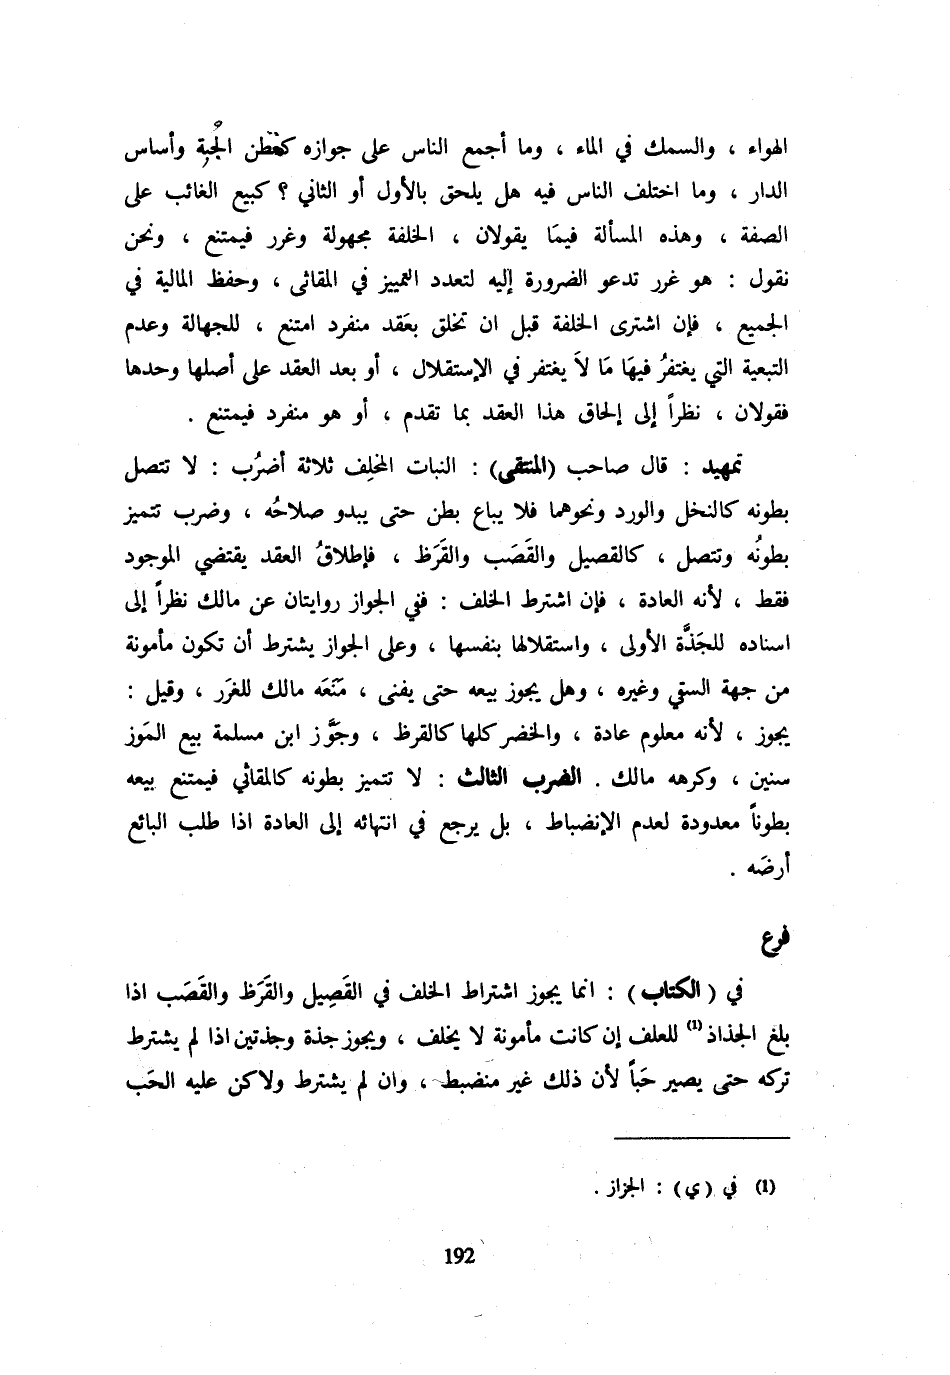 الهواء ، والسمك في الماء ، وما أجمع الناس على جوازه كقطن الجُبة وأساس
الدار ، وما اختلف الناس فيه هل يلحق بالأول أو الثاني ؟ كبيع الغائب على
الصفة ، وهذه المسألة فيمَا يقولان ، الخلفة مجهولة وغرر فيمتنع ، ونحن
نقول : هو غرر تدعو الضرورة إليه لتعدد التمييز في المقاثى ، وحفظ المالية في
الجميع ، فإن اشترى الخلفة قبل ان تخلق بعَقد منفرد امتنع ، للجهالة وعدم
التبعية التي يغتفرُ فيهَا مَا لاَ يغتفر في الإستقلال ، أو بعد العقد على أصلها وحدها
فقولان ، نظراً إلى إلحاق هذا العقد بما تقدم ، أو هو منفرد فيمتنع .
تمهيد : قال صاحب (المنتقى) : النبات المخلِف ثلاثة أضرُب : لا تتصل
بطونه كالنخل والورد ونحوهما فلا يباع بطن حتى يبدو صلاحُه ، وضرب تتميز
بطونُه وتتصل ، كالقصيل والقَصَب والقَرَظ ، فإطلاقُ العقد يقتضي الموجود
فقط ، لأنه العادة ، فإن اشترط الخلف : ففي الجواز روايتان عن مالك نظراً إلى
اسناده للجَذَّة الأولى ، واستقلالها بنفسها ، وعلى الجواز يشترط أن تكون مأمونة
من جهة السقي وغيره ، وهل يجوز بيعه حتى يفنى ، مَنَعَه مالك للغرَر ، وقيل :
يجوز ، لأنه معلوم عادة ، والخضر كلها كالقرظ ، وجَوَّز ابن مسلمة بيع المَوز
سنين ، وكرهه مالك . الضرب الثالث : لا تتميز بطونه كالمقاثي فيمتنع بيعه
بطوناً معدودة لعدم الإنضباط ، بل يرجع في انتهائه إلى العادة اذا طلب البائع
أرضَه .
فرع
في (الكتاب) : انما يجوز اشتراط الخلف في القَصِيل والقَرَظ والقَصَب اذا
بلغ الجذاذ (1) للعلف إن كانت مأمونة لا يخلف ، ويجوز جذة وجذتين اذا لم يشترط
تركه حتى يصير حَباً لأن ذلك غير منضبط ، وان لم يشترط ولاكن عليه الحَب
(1) في (ي) : الجزاز .
192